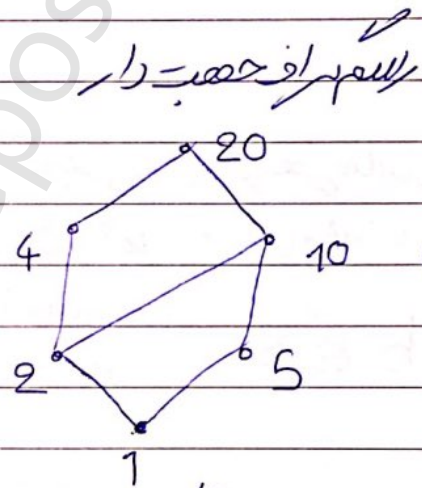 رسم گراف جهت دار
20
4 10
2 5
1
epos